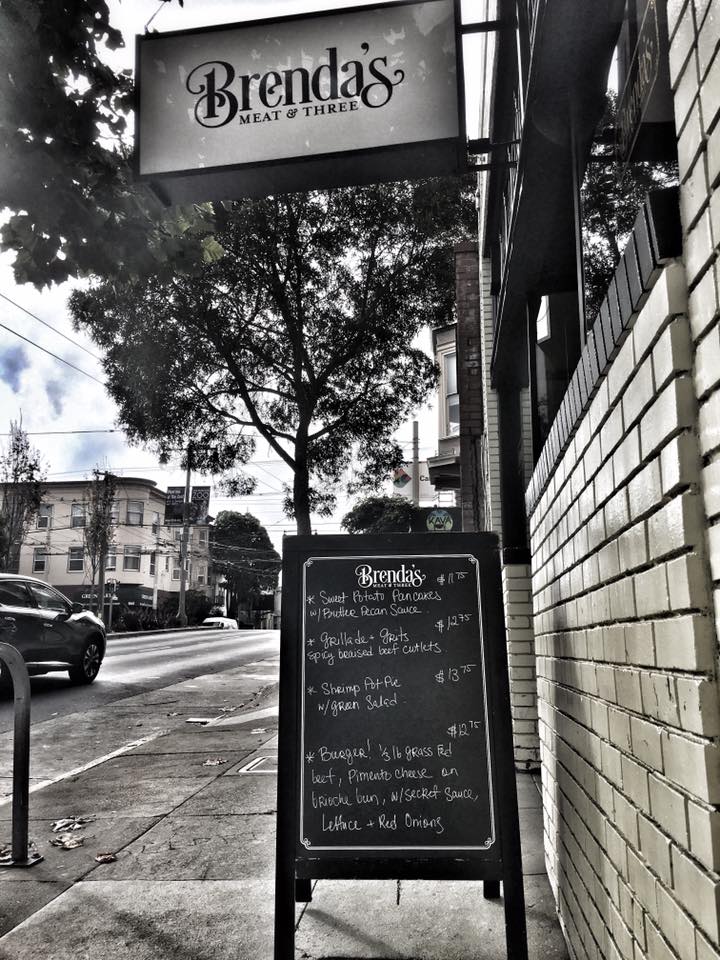 Brenda's
MEAT & THREE
ZOO
Ca
KAVA
Brenda's
MEAT & THREE
$11.75
* Sweet Potato Pancakes
w/Butter Pecan Sauce.
$12.75
* Grillade + Grits
Spicy braised beef cutlets.
$13.75
* Shrimp Pot Pie
w/green Salad.
$12.75
* Burger! 1/3 lb grass fed
beef, Pimento cheese on
brioche bun, w/secret sauce,
Lettuce + Red Onions